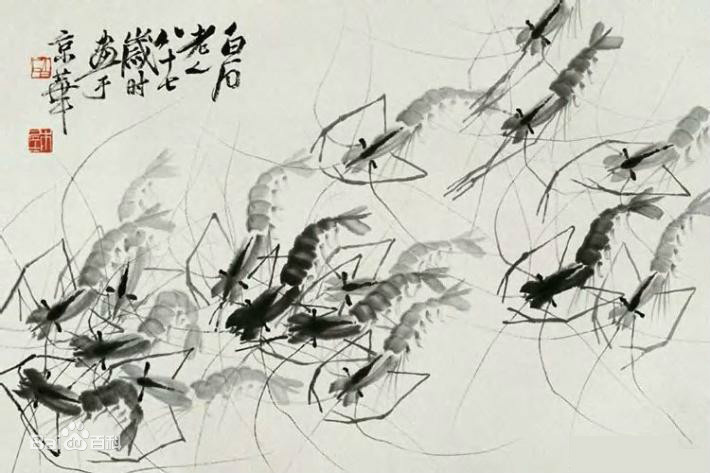 白石
老人
八十七
歲时
畫于
京華
Bai百科